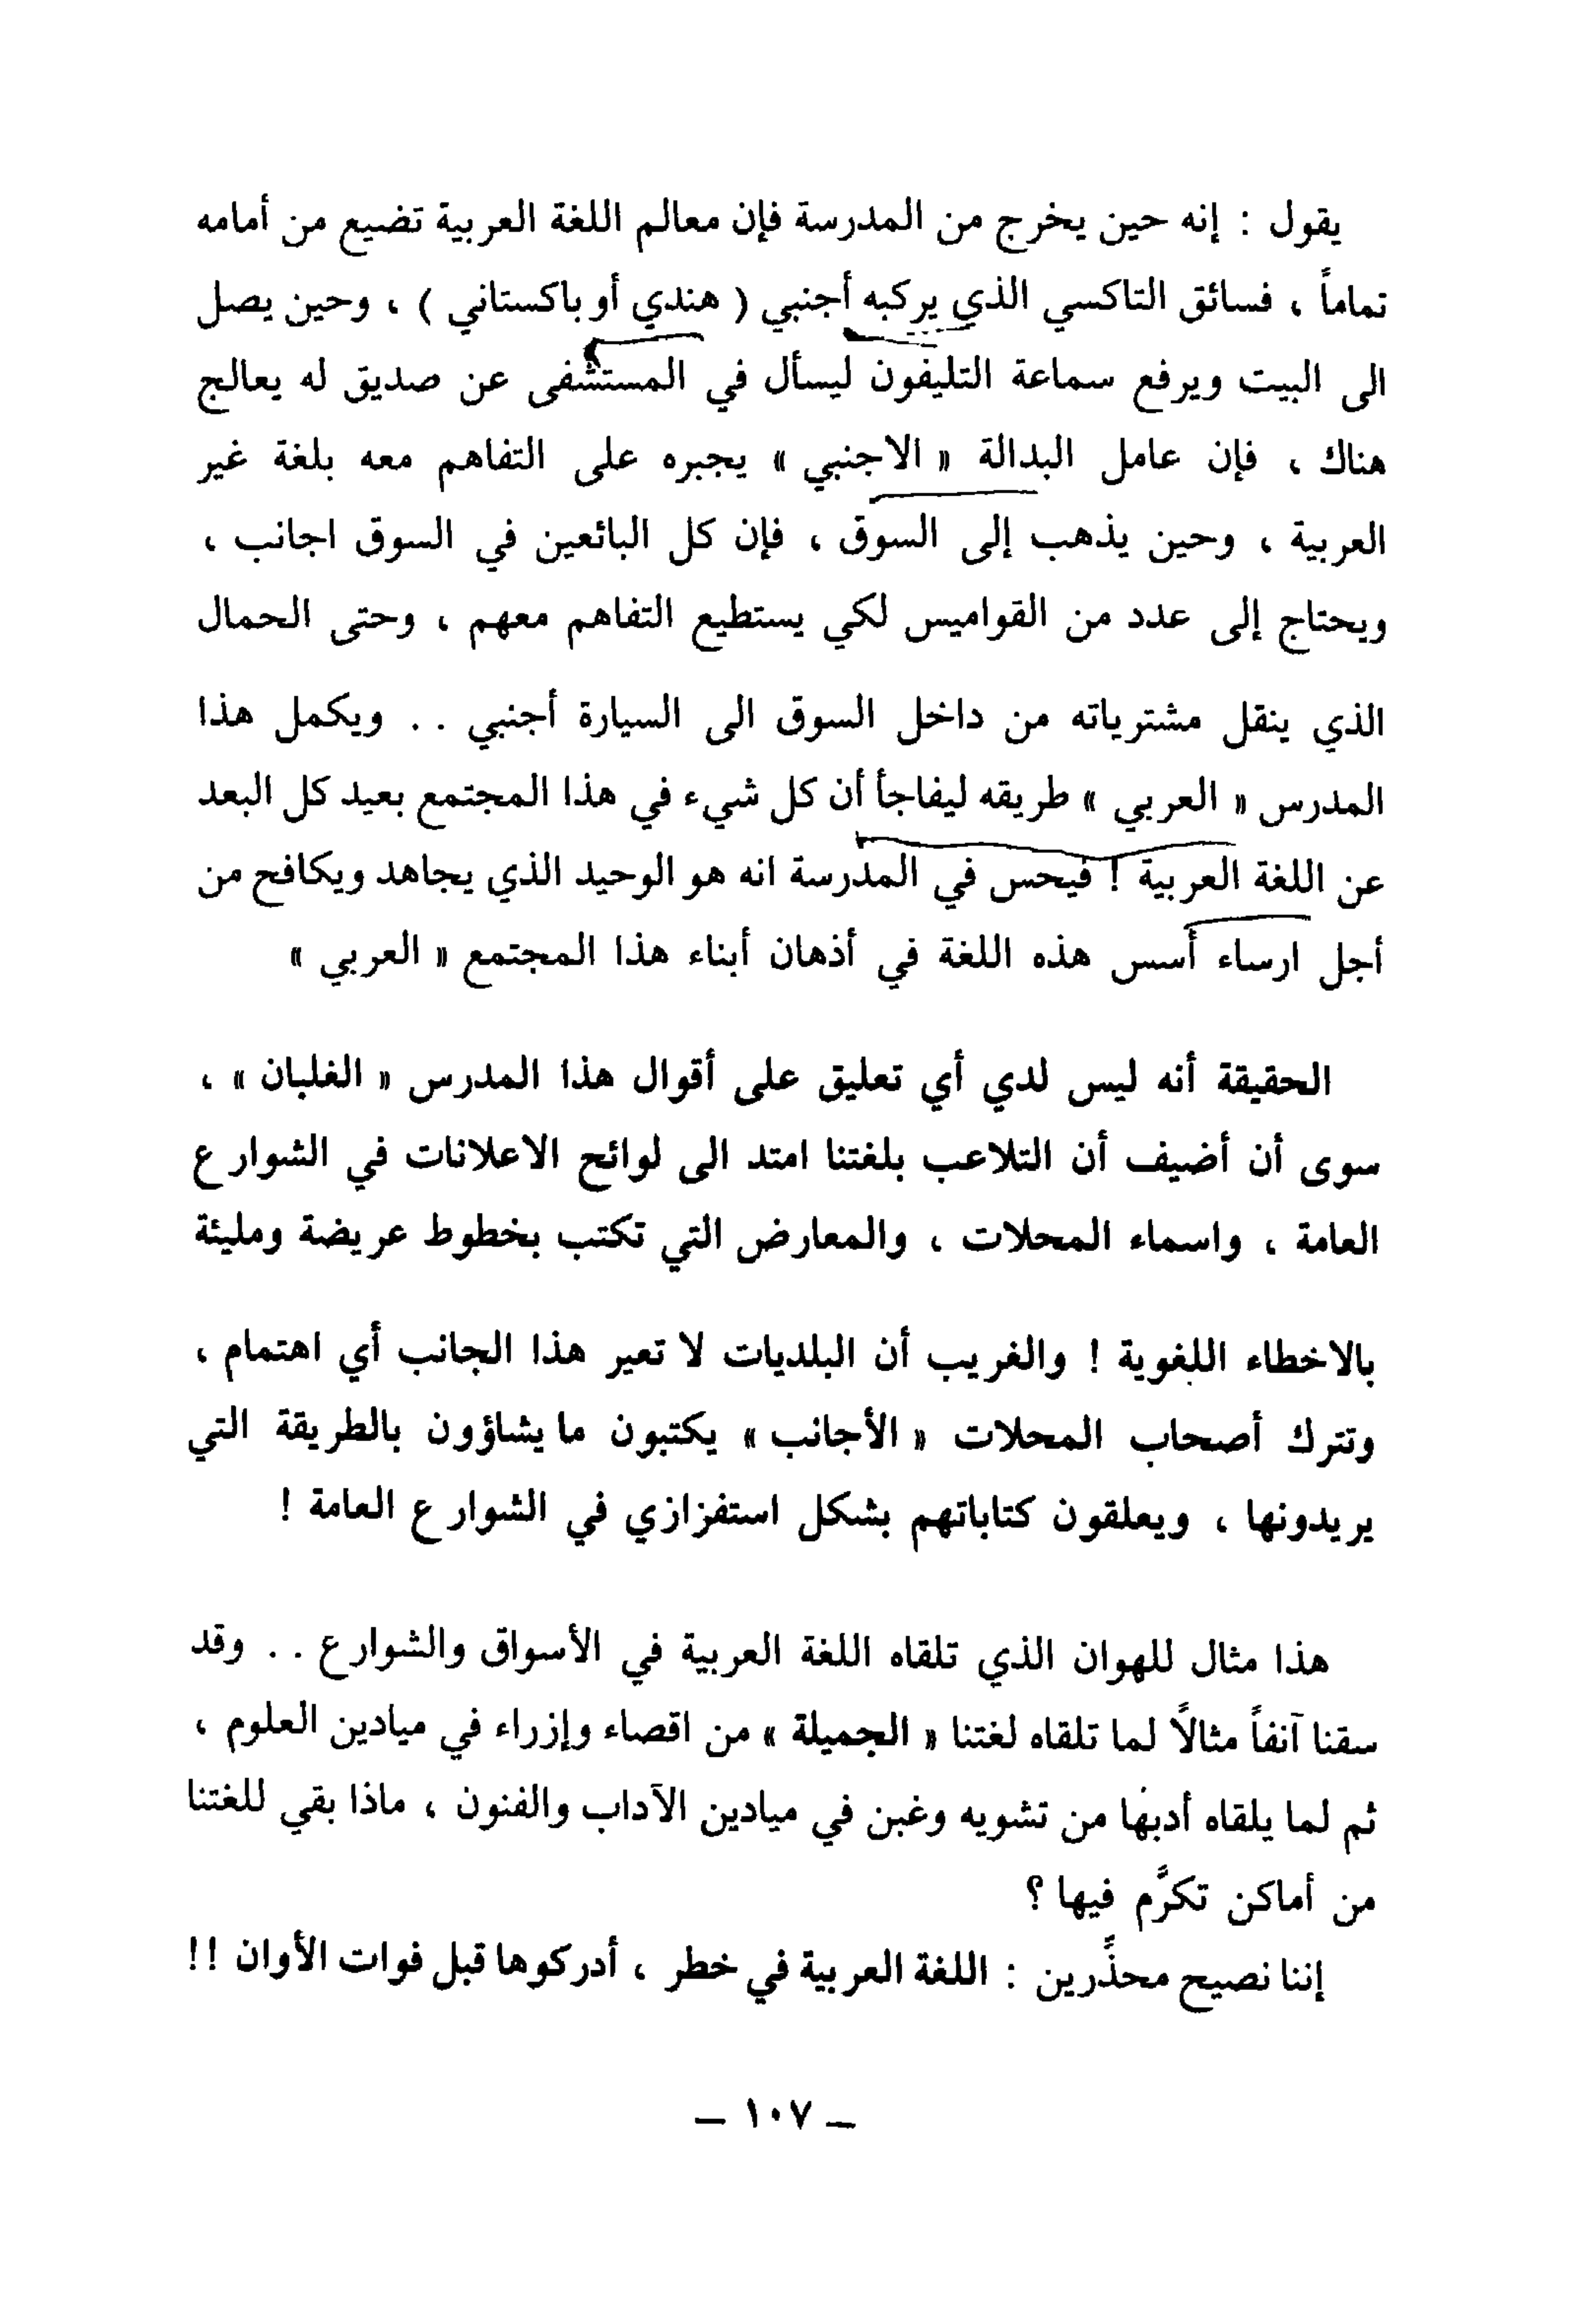 يقول : إنه حين يخرج من المدرسة فإن معالم اللغة العربية تضيع من أمامه
تماماً ، فسائق التاكسي الذي يركبه أجنبي ( هندي أو باكستاني ) ، وحين يصل
الى البيت ويرفع سماعة التليفون ليسأل في المستشفى عن صديق له يعالج
هناك ، فإن عامل البدالة « الاجنبي » يجبره على التفاهم معه بلغة غير
العربية ، وحين يذهب إلى السوق ، فإن كل البائعين في السوق اجانب ،
ويحتاج إلى عدد من القواميس لكي يستطيع التفاهم معهم ، وحتى الحمال
الذي ينقل مشترياته من داخل السوق الى السيارة أجنبي . . ويكمل هذا
المدرس « العربي » طريقه ليفاجأ أن كل شيء في هذا المجتمع بعيد كل البعد
عن اللغة العربية ! فيحس في المدرسة انه هو الوحيد الذي يجاهد ويكافح من
أجل ارساء أسس هذه اللغة في أذهان أبناء هذا المجتمع « العربي »
الحقيقة أنه ليس لدي أي تعليق على أقوال هذا المدرس « الغلبان » ،
سوى أن أضيف أن التلاعب بلغتنا امتد الى لوائح الاعلانات في الشوارع
العامة ، واسماء المحلات ، والمعارض التي تكتب بخطوط عريضة ومليئة
بالاخطاء اللغوية ! والغريب أن البلديات لا تعير هذا الجانب أي اهتمام ،
وتترك أصحاب المحلات « الأجانب » يكتبون ما يشاؤون بالطريقة التي
يريدونها ، ويعلقون كتاباتهم بشكل استفزازي في الشوارع العامة !
هذا مثال للهوان الذي تلقاه اللغة العربية في الأسواق والشوارع . . وقد
سقنا آنفاً مثالاً لما تلقاه لغتنا « الجميلة » من اقصاء وإزراء في ميادين العلوم ،
ثم لما يلقاه أدبها من تشويه وغبن في ميادين الآداب والفنون ، ماذا بقي للغتنا
من أماكن تكرَّم فيها ؟
إننا نصيح محذِّرين : اللغة العربية في خطر ، أدركوها قبل فوات الأوان !!
– ١٠٧ –